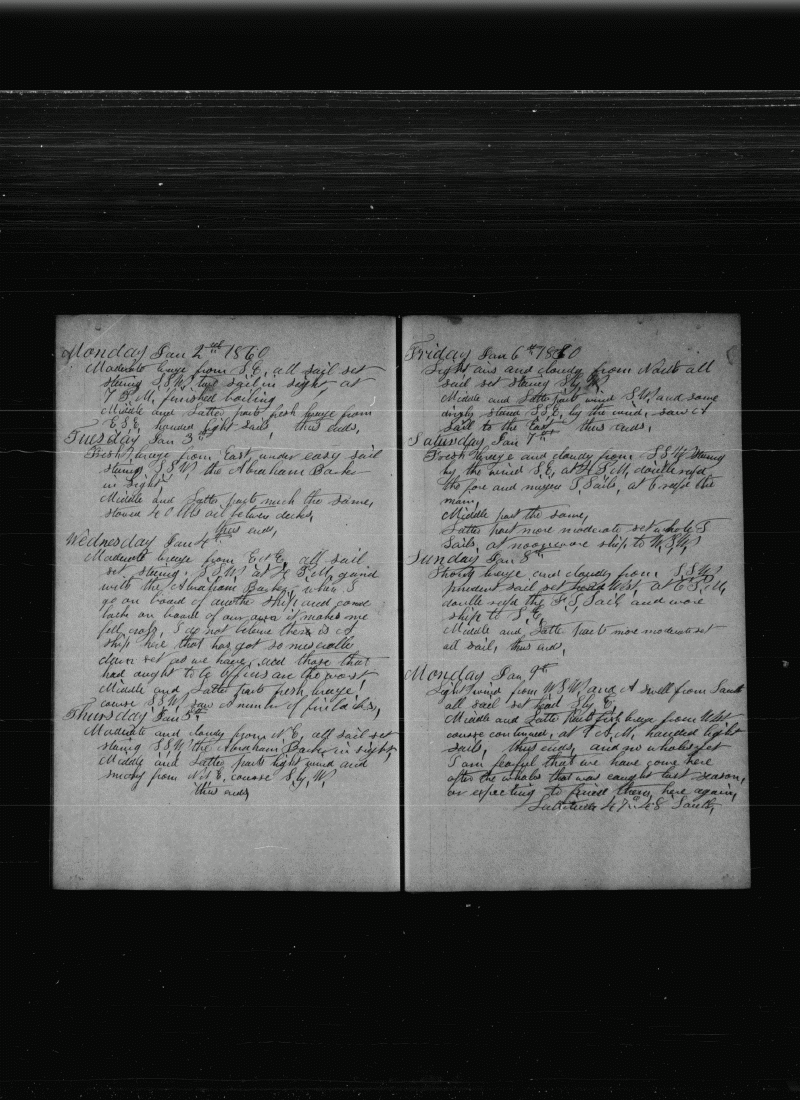 Monday Jan 2nd 1860
Moderate breeze from S.E. all sail set
stering S.S.W. two sail in sight at
7 P.M. finished boiling
Middle and Latter parts fresh breeze from
E.S.E. handed light sails, thus ends,
Tuesday Jan 3rd
Fresh breeze from East under easy sail
stering S.S.W. the Abraham Barker
in sight,
Middle and Latter parts much the same,
stowed 40 bbls oil between decks,
thus ends,
Wednesday Jan 4th
Moderate breeze from all sail
set stering S.S.W. at P.M.
with the Abraham Barker, when I
go on board of another ship and come
back on board of our own it makes me
feel cross, I do not believe there is A
ship here that has got so miserable
set as we have, and those that
had ought to be officers are the worst
Middle and Latter parts fresh breeze,
course S.S.W. saw A number of finbacks,
Thursday Jan 5th
Moderate and cloudy from N.E. all sail set
stering S.S.W. the Abraham Barker in sight,
Middle and Latter parts light wind and
from course S. by W.
thus ends
Friday Jan 6th 1860
Light airs and cloudy from North all
sail set stering S by W.
Middle and Latter parts wind S.W. and some
steerd S.S.E. by the wind, saw A
Sail to the East thus ends,
Saturday Jan 7th
Fresh breeze and cloudy from S.S.W. stering
by the wind S.E. at P.M. double refd
the fore and mizzen T. Sails, at 6 refd the
main,
Middle part the same,
Latter part more moderate set whole T
Sails, at noon wore ship to W.S.W.
Sunday Jan 8th
Strong breeze and cloudy from S.S.W.
prudent sail set head West, at 6 P.M.
double refd the F.T. Sail and wore
ship to S.E.
Middle and Latter parts more moderate set
all sail, thus ends,
Monday Jan 9th
Light wind from W.S.W. and A swell from South
all sail set head S by E.
Middle and Latter parts fresh breeze from West
course continued, at 9 A.M. handed light
sails, thus ends, and no whales yet
I am fearful that we have come here
after the whales that was caught last season,
or expecting to find them here again,
Latitude 47°.48 South,